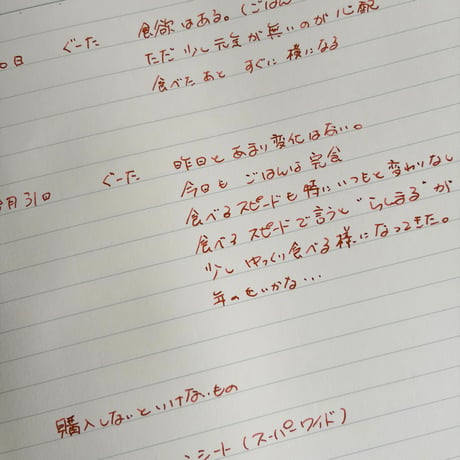 0日 ぐーた 食欲はある。(ごはん
ただ少し元気が無いのが心配
食べたあと すぐに 横になる
月31日 ぐーた 昨日とあまり変化はない。
今日も ごはんは完食
食べるスピードも特にいつもと変わりなし
食べるスピードで言うと"らしまる"が
少しゆっくり食べる様になってきた。
年のせいかな…
購入しないといけないもの
シート(スーパーワイド)